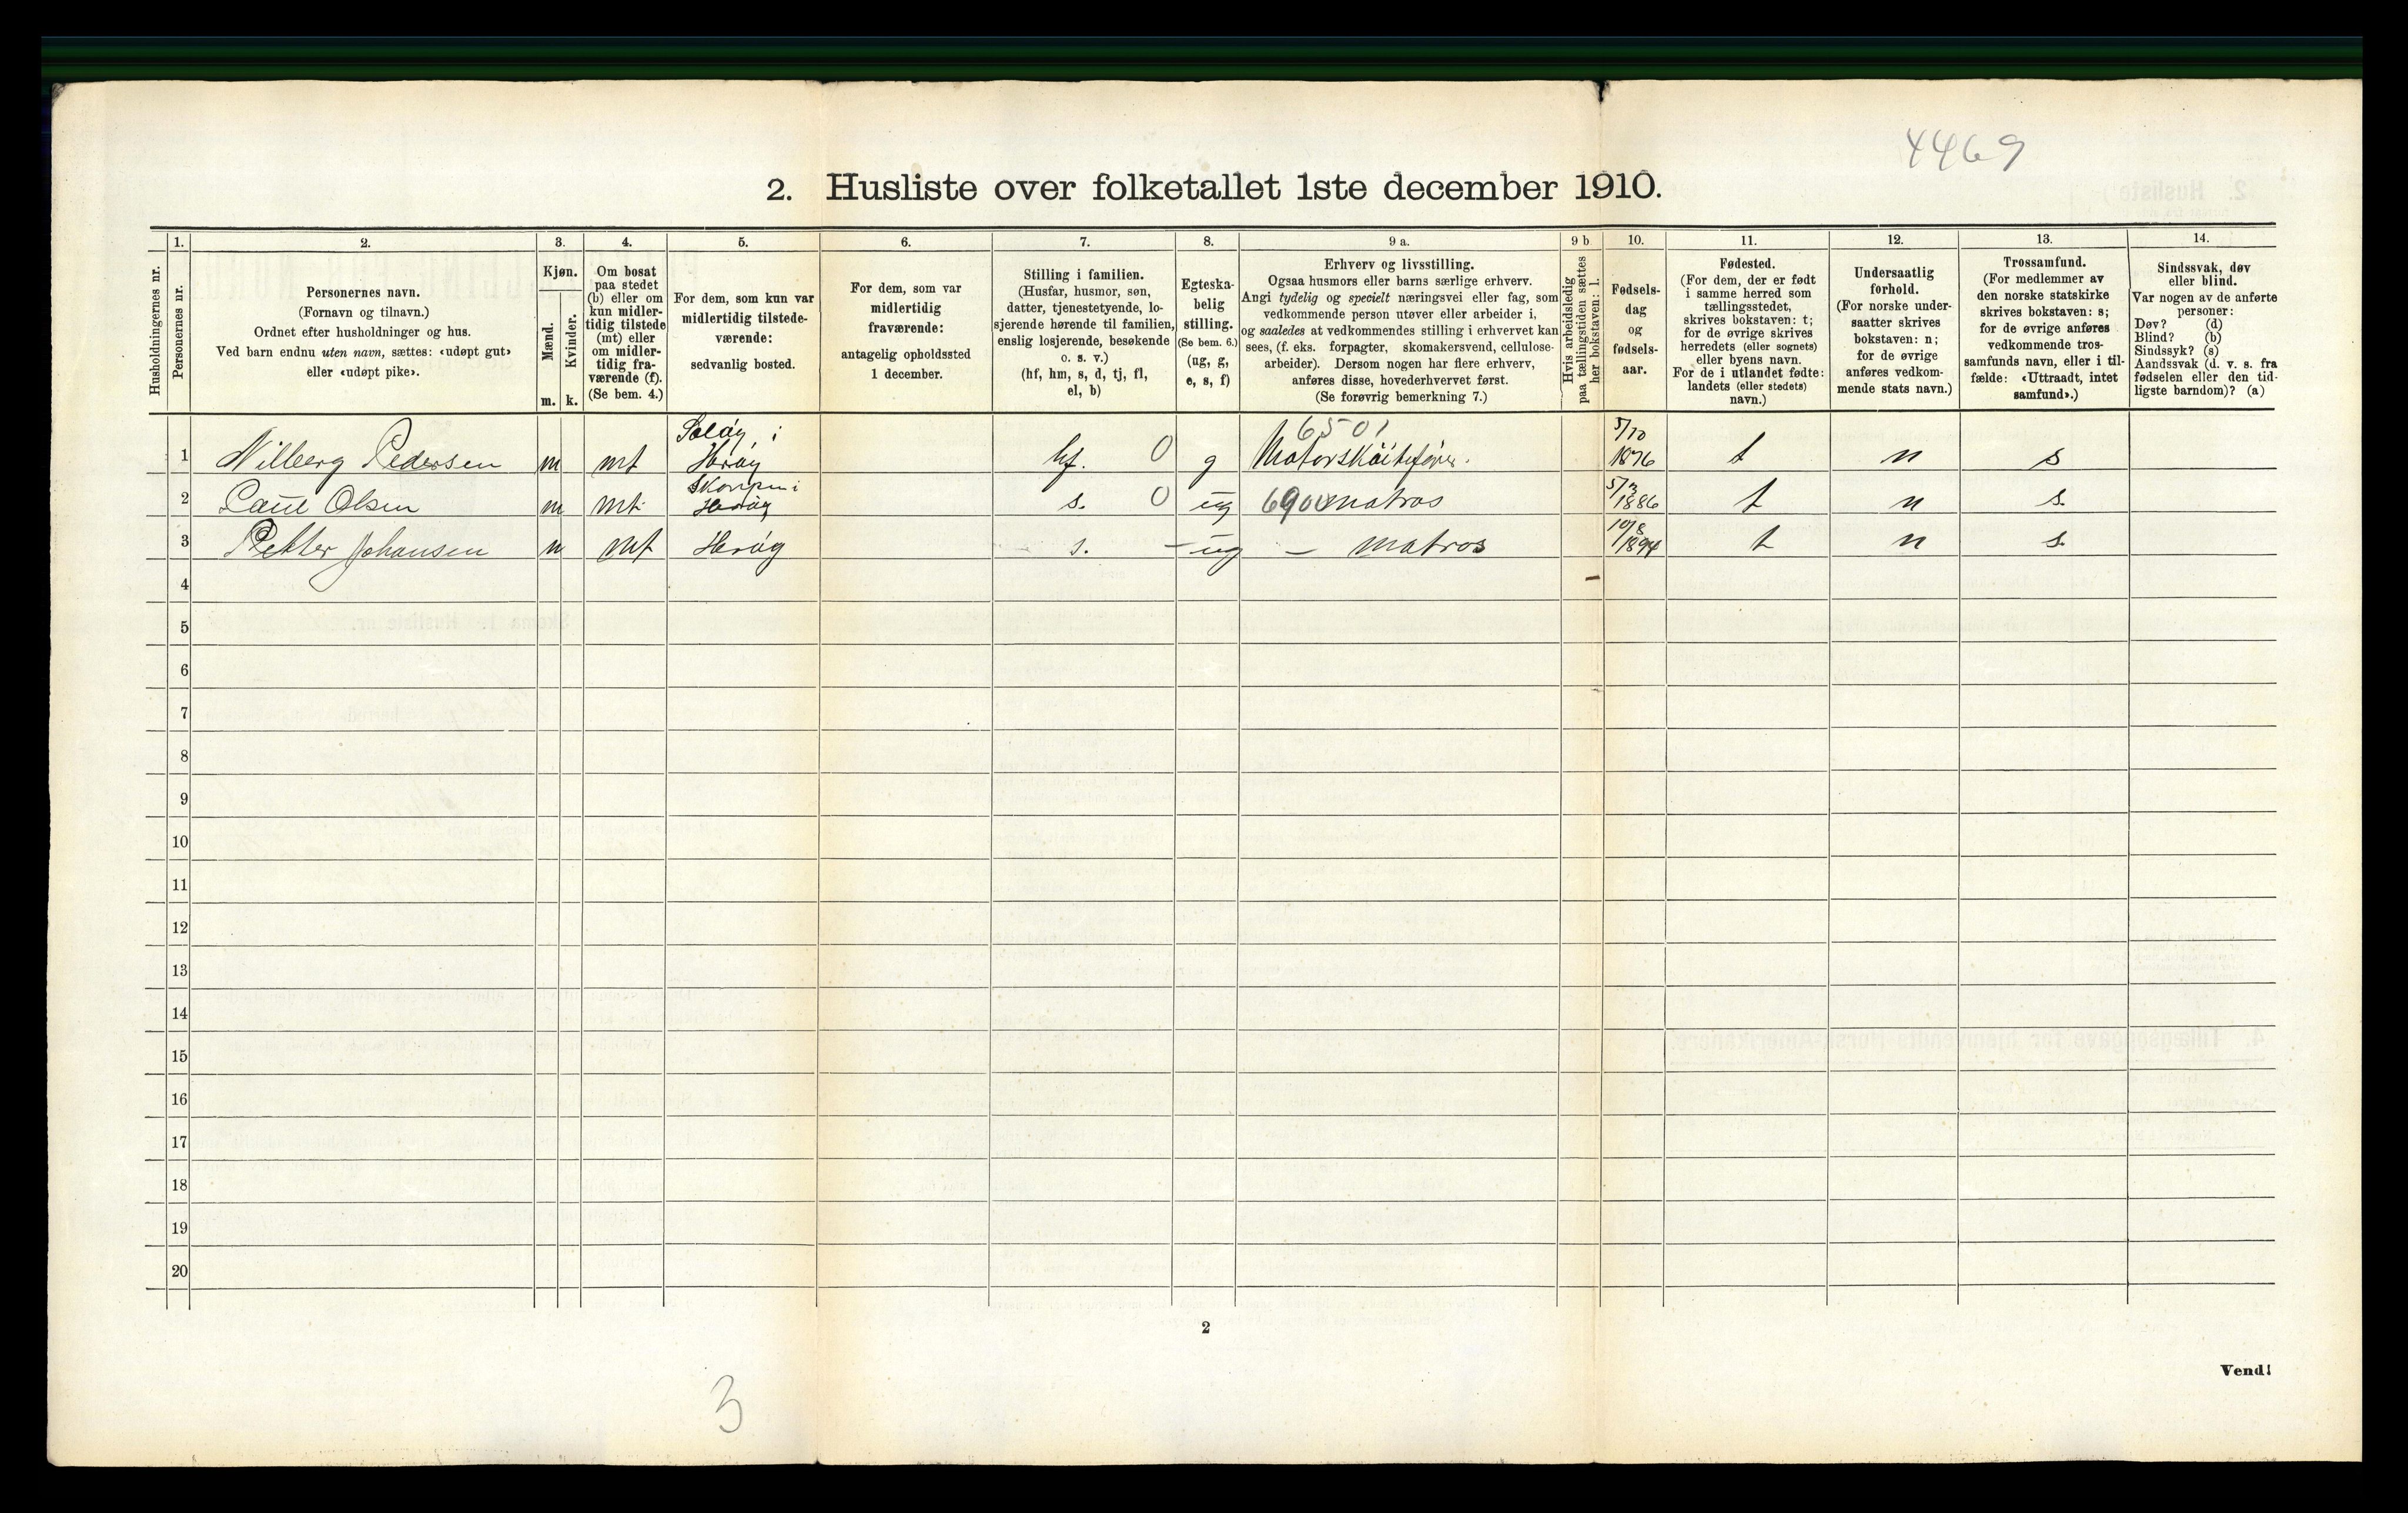 4469
2. Husliste over folketallet 1ste december 1910.
Husholdningernes nr.
1.
Personernes nr.
2.
Personernes navn.
(Fornavn og tilnavn.)
Ordnet efter husholdninger og hus.
Ved barn endnu uten navn, sættes: «udøpt gut»
eller «udøpt pike».
3.
Kjøn.
Mænd.
Kvinder.
m. k.
4.
Om bosat
paa stedet
(b) eller om
kun midler-
tidig tilstede
(mt) eller
om midler-
tidig fra-
værende (f).
(Se bem. 4.)
5.
For dem, som kun var
midlertidig tilstede-
værende:
sedvanlig bosted.
6.
For dem, som var
midlertidig
fraværende:
antagelig opholdssted
1 december.
7.
Stilling i familien.
(Husfar, husmor, søn,
datter, tjenestetyende, lo-
sjerende hørende til familien,
enslig losjerende, besøkende
o. s. v.)
(hf, hm, s, d, tj, fl,
el, b)
8.
Egteska-
belig
stilling.
(Se bem. 6.)
(ug, g,
e, s, f)
9 a.
Erhverv og livsstilling.
Ogsaa husmors eller barns særlige erhverv.
Angi tydelig og specielt næringsvei eller fag, som
vedkommende person utøver eller arbeider i,
og saaledes at vedkommendes stilling i erhvervet kan
sees, (f. eks. forpagter, skomakersvend, cellulose-
arbeider). Dersom nogen har flere erhverv,
anføres disse, hovederhvervet først.
(Se forøvrig bemerkning 7.)
9 b
Hvis arbeidsledig
paa tællingstiden sættes
her bokstaven: l.
10.
Fødsels-
dag
og
fødsels-
aar.
11.
Fødested.
(For dem, der er født
i samme herred som
tællingsstedet,
skrives bokstaven: t;
for de øvrige skrives
herredets (eller sognets)
eller byens navn.
For de i utlandet fødte:
landets (eller stedets)
navn.)
12.
Undersaatlig
forhold.
(For norske under-
saatter skrives
bokstaven: n;
for de øvrige
anføres vedkom-
mende stats navn.)
13.
Trossamfund.
(For medlemmer av
den norske statskirke
skrives bokstaven: s;
for de øvrige anføres
vedkommende tros-
samfunds navn, eller i til-
fælde: «Uttraadt, intet
samfund».)
14.
Sindssvak, døv
eller blind.
Var nogen av de anførte
personer:
Døv? (d)
Blind? (b)
Sindssyk? (s)
Aandssvak (d. v. s. fra
fødselen eller den tid-
ligste barndom)? (a)
1 Nilberg Pedersen m mt Herøy hf. 0 g 6501 Motorskøitefører. 5/10 1876 t n s
2 Paul Olsen m mt. Herøy s. 0 ug 6900 matros 1886 t n s.
3 Petter Johansen m mt Herøy s. - ug - matros 10/8 1894 t n s.
4
5
6
7
8
9
10
11
12
13
14
15
16
17
18
19
20
2
Vend!
3